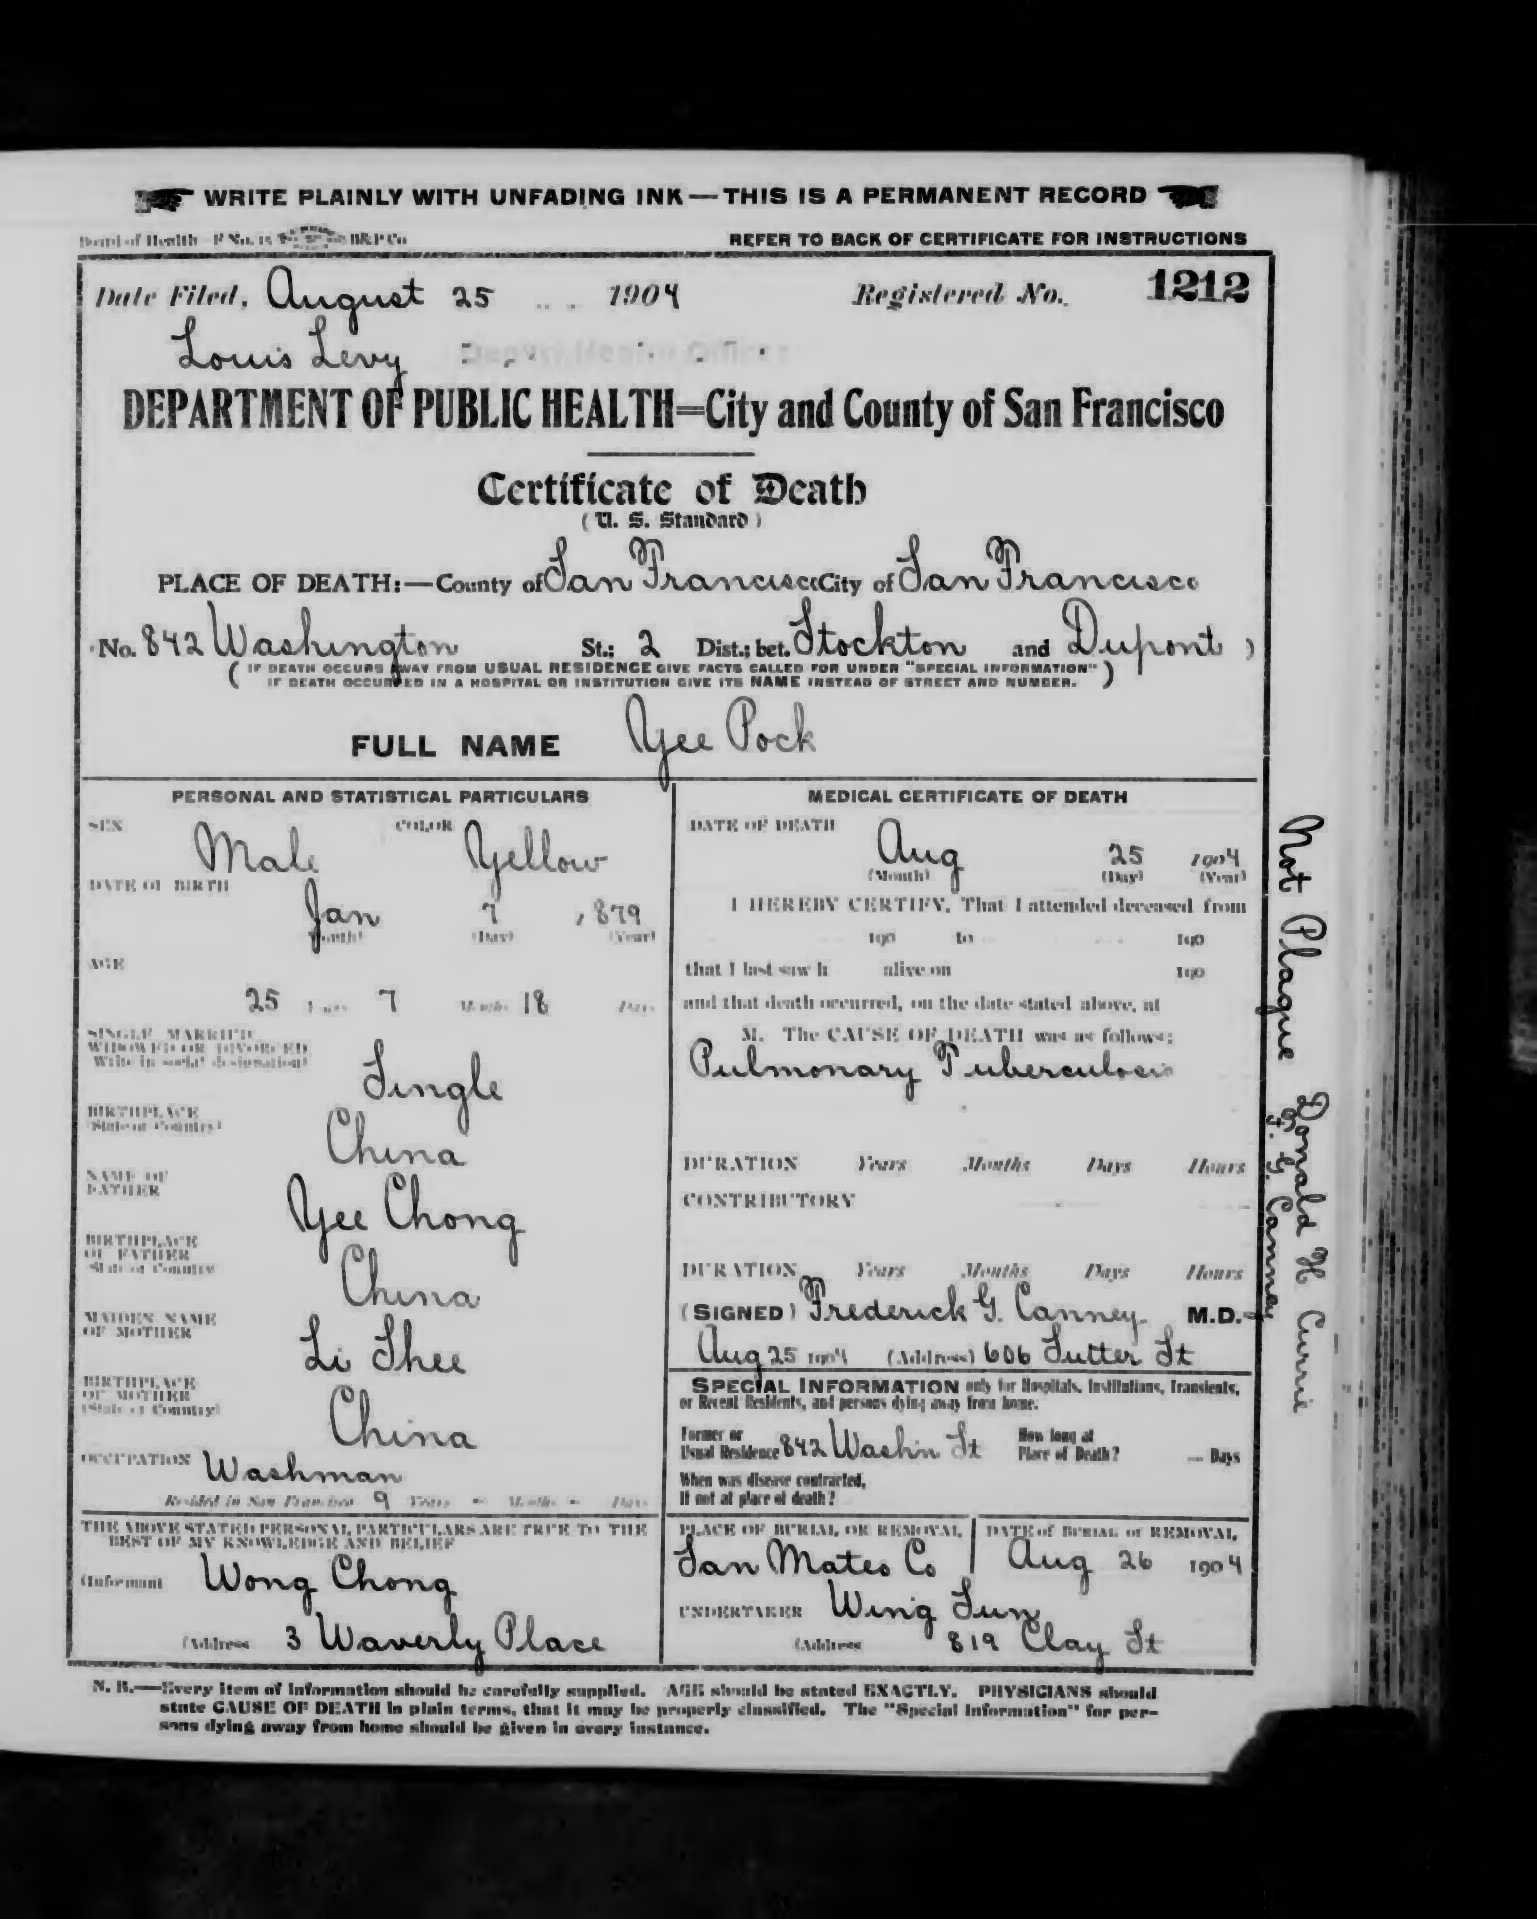 WRITE PLAINLY WITH UNFADING INK — THIS IS A PERMANENT RECORD
Board of Health P No. 15 B&P Co
REFER TO BACK OF CERTIFICATE FOR INSTRUCTIONS
Date Filed, August 25 1904 Registered No. 1212
Louis Levy Deputy Health Officer
DEPARTMENT OF PUBLIC HEALTH=City and County of San Francisco
Certificate of Death
(U. S. Standard)
PLACE OF DEATH:—County of San Francisco City of San Francisco
No. 842 Washington St.; 2 Dist.; bet. Stockton and Dupont )
( IF DEATH OCCURS AWAY FROM USUAL RESIDENCE GIVE FACTS CALLED FOR UNDER "SPECIAL INFORMATION"
IF DEATH OCCURRED IN A HOSPITAL OR INSTITUTION GIVE ITS NAME INSTEAD OF STREET AND NUMBER. )
FULL NAME Yee Pock
PERSONAL AND STATISTICAL PARTICULARS
SEX Male COLOR Yellow
DATE OF BIRTH
Jan 7 1879
(Month) (Day) (Year)
AGE
25 Years 7 Months 18 Days
SINGLE MARRIED
WIDOWED OR DIVORCED
Write in social designation)
Single
BIRTHPLACE
(State or Country)
China
NAME OF
FATHER
Yee Chong
BIRTHPLACE
OF FATHER
State or Country
China
MAIDEN NAME
OF MOTHER
Li Shee
BIRTHPLACE
OF MOTHER
(State or Country)
China
OCCUPATION Washman
Resided in San Francisco 9 Years - Months - Days
THE ABOVE STATED PERSONAL PARTICULARS ARE TRUE TO THE
BEST OF MY KNOWLEDGE AND BELIEF
(Informant Wong Chong
(Address 3 Waverly Place
MEDICAL CERTIFICATE OF DEATH
DATE OF DEATH
Aug 25 1904
(Month) (Day) (Year)
I HEREBY CERTIFY, That I attended deceased from
190 to 190
that I last saw h alive on 190
and that death occurred, on the date stated above, at
M. The CAUSE OF DEATH was as follows:
Pulmonary Tuberculosis
DURATION Years Months Days Hours
CONTRIBUTORY
DURATION Years Months Days Hours
(SIGNED) Frederick G. Canney. M.D.
Aug 25 1904 (Address) 606 Sutter St
SPECIAL INFORMATION only for Hospitals, Institutions, Transients,
or Recent Residents, and persons dying away from home.
Former or
Usual Residence 842 Wash'n St
How long at
Place of Death? — Days
When was disease contracted,
If not at place of death?
PLACE OF BURIAL OR REMOVAL
San Mateo Co
DATE of BURIAL or REMOVAL
Aug 26 1904
UNDERTAKER Wing Sun
(Address 819 Clay St
N. B.—Every item of information should be carefully supplied. AGE should be stated EXACTLY. PHYSICIANS should
state CAUSE OF DEATH in plain terms, that it may be properly classified. The "Special Information" for per-
sons dying away from home should be given in every instance.
Not Plague Donald H Currie
F. G. Canney